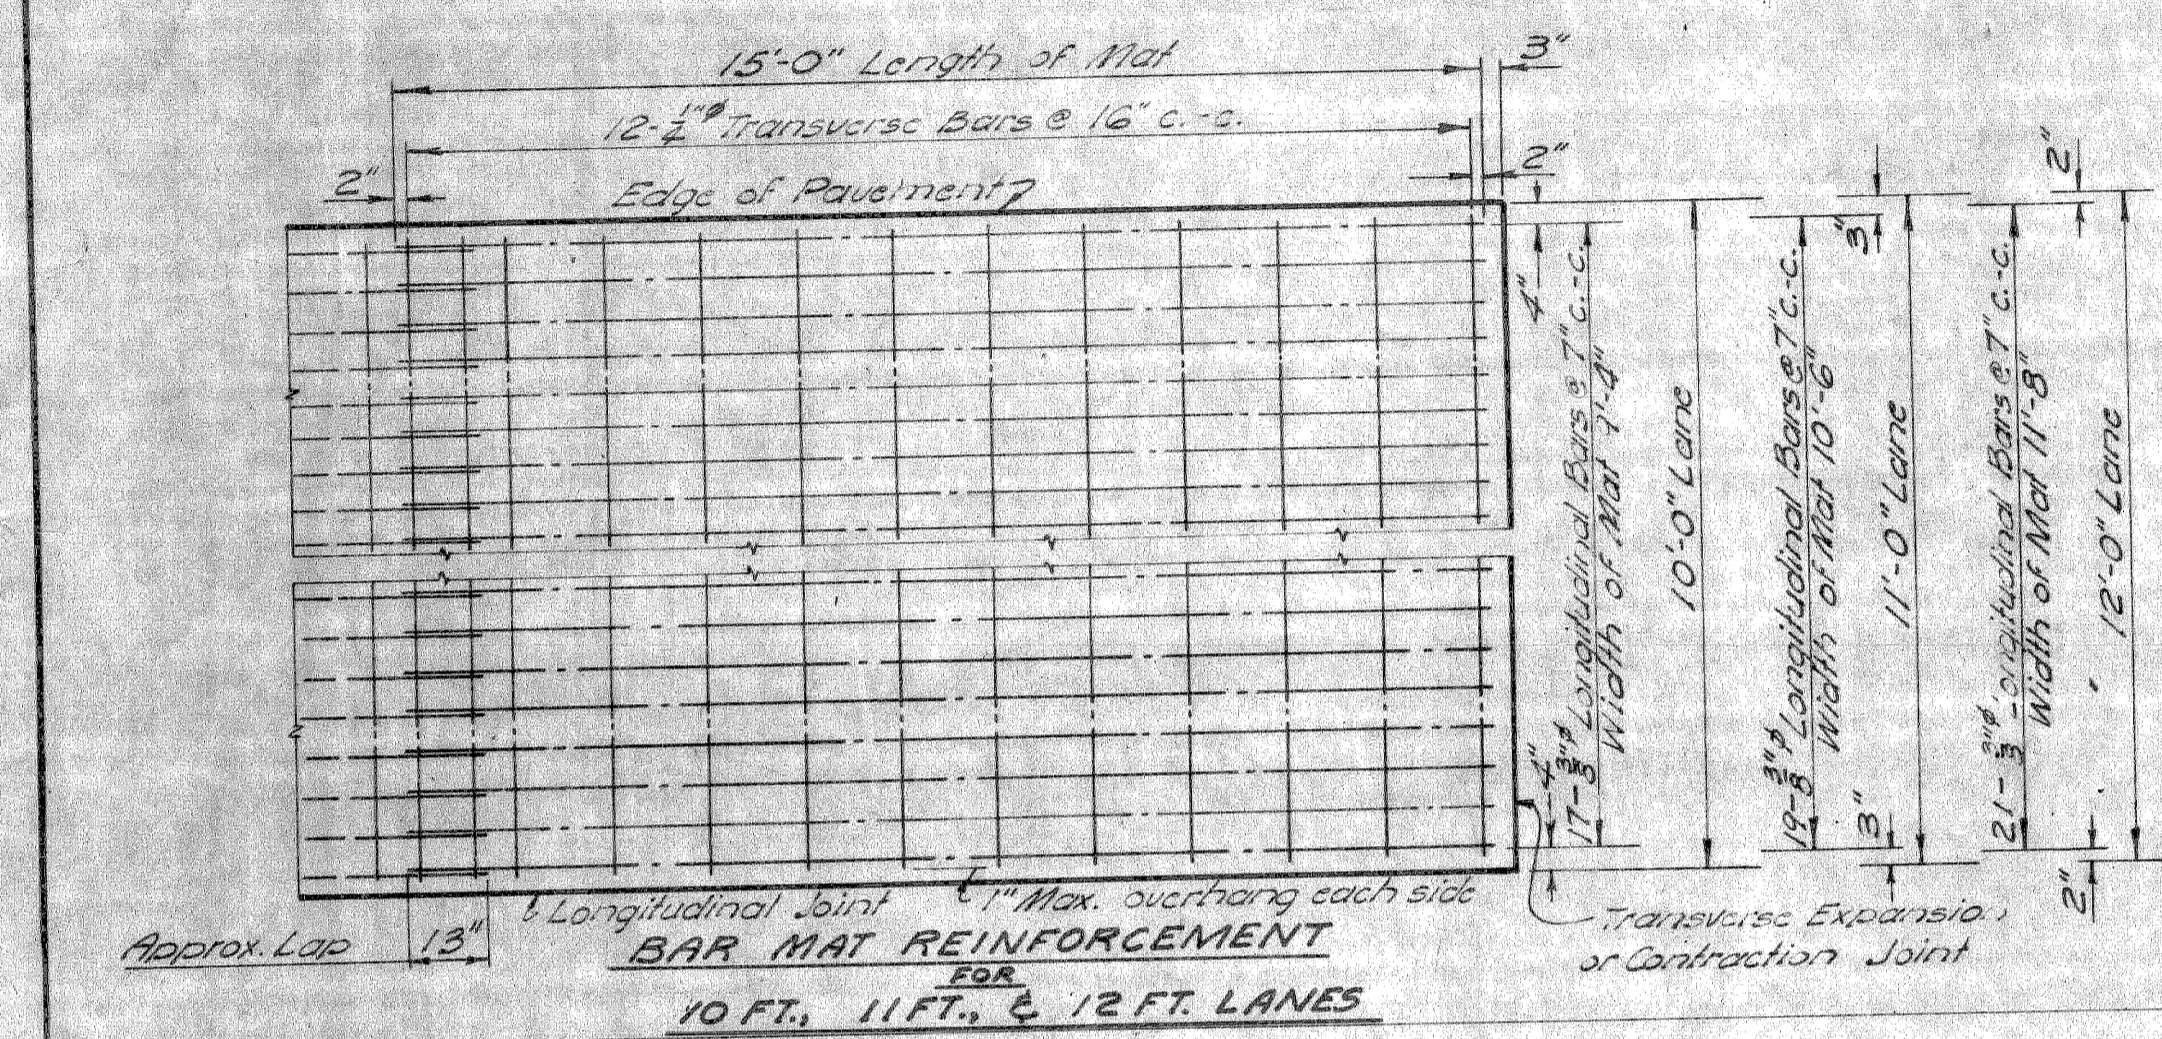 15'-0" Length of Mat
3"
12-½"ø Transverse Bars @ 16" c.-c.
2"
2"
Edge of Pavement
4"
17-⅜"ø Longitudinal Bars @ 7" c.-c.
Width of Mat 9'-4"
4"
10'-0" Lane
3"
19-⅜"ø Longitudinal Bars @ 7" c.-c.
Width of Mat 10'-6"
3"
11'-0" Lane
2"
21-⅜"ø Longitudinal Bars @ 7" c.-c.
Width of Mat 11'-8"
2"
12'-0" Lane
Longitudinal Joint
1" Max. overhang each side
Approx. Lap
13"
Transverse Expansion
or Contraction Joint
BAR MAT REINFORCEMENT
FOR
10 FT., 11 FT., & 12 FT. LANES